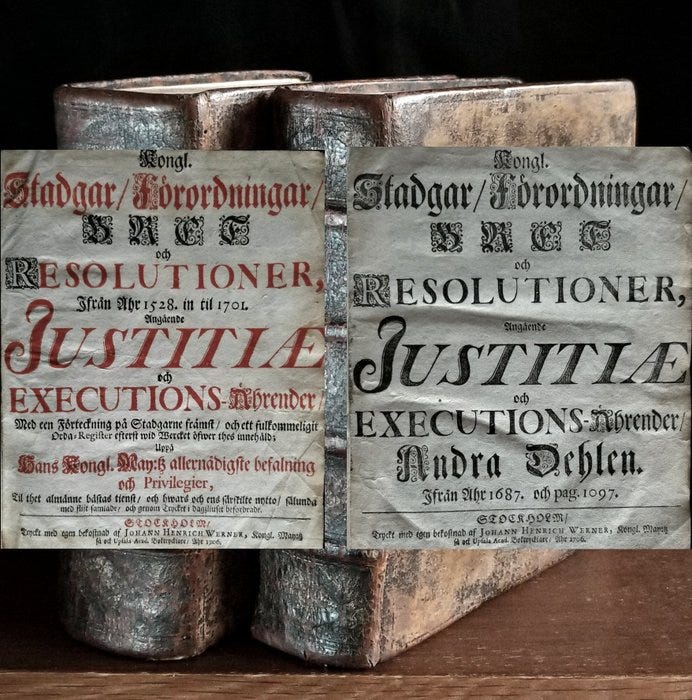 Kongl.
Stadgar/ Förordningar/
BREF
och
RESOLUTIONER,
Ifrån Åhr 1528. in til 1701.
Angående
JUSTITIÆ
och
EXECUTIONS-Ährender/
Med een Förteckning på Stadgarne främst/ och ett fulkommeligit
Orda-Register efterst wid Wercket öfwer thes innehåld;
Uppå
Hans Kongl. May:tz allernådigste befalning
och Privilegier,
Til thet almänne bästas tienst/ och hwars och ens särskilte nytto/ sålunda
med flit samlade/ och genom Trycket i dagsliuset befordrade.
STOCKHOLM/
Tryckt med egen bekostnad af JOHANN HENRICH WERNER, Kongl. May:tz
så och Upsala Acad. Boktryckare/ Åhr 1706.
Kongl.
Stadgar/ Förordningar/
BREF
och
RESOLUTIONER,
Angående
JUSTITIÆ
och
EXECUTIONS-Ährender/
Andra Dehlen.
Ifrån Åhr 1687. och pag. 1097.
STOCKHOLM/
Tryckt med egen bekostnad af JOHANN HENRICH WERNER, Kongl. May:tz
så och Upsala Acad. Boktryckare/ Åhr 1706.